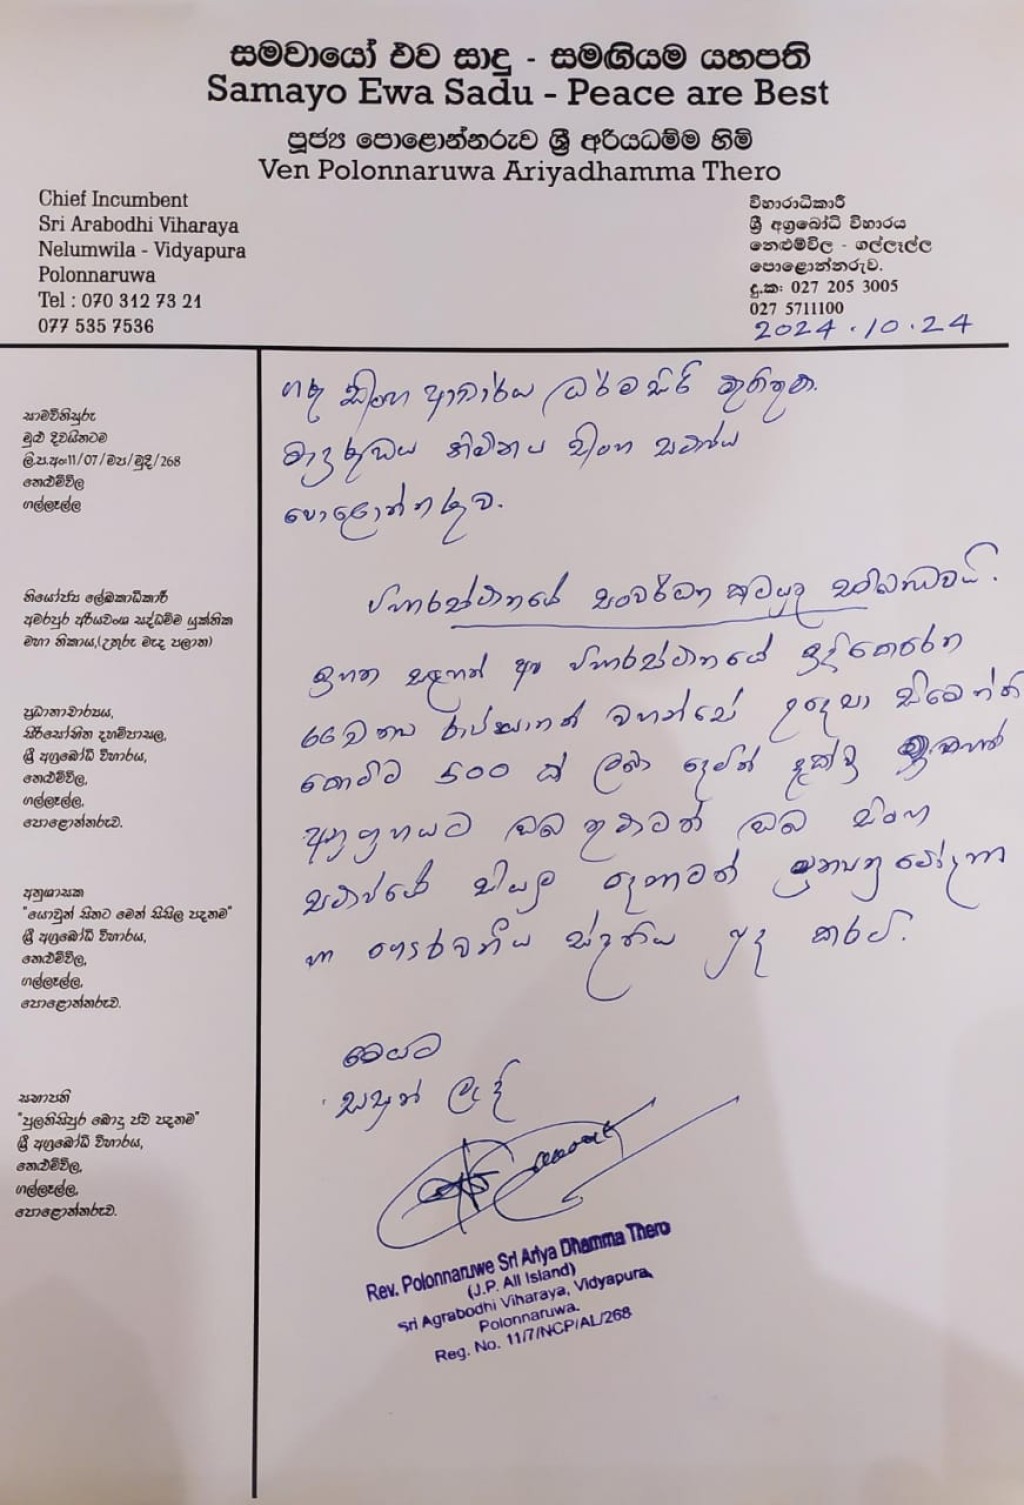 සමවායෝ ඒව සාදු - සමඟියම යහපති
Samayo Ewa Sadu - Peace are Best
පූජ්‍ය පොළොන්නරුව ශ්‍රී අරියධම්ම හිමි
Ven Polonnaruwa Ariyadhamma Thero
Chief Incumbent
Sri Arabodhi Viharaya
Nelumwila - Vidyapura
Polonnaruwa
Tel : 070 312 73 21
077 535 7536
විහාරාධිකාරී
ශ්‍රී අග්‍රබෝධි විහාරය
නෙළුම්විල - ගල්ලෑල්ල
පොළොන්නරුව.
දු.ක: 027 205 3005
027 5711100
2024.10.24
සාමවිනිසුරු
මුළු දිවයිනටම
ලි.ප.අං11/07/මප/මුදි/268
නෙළුම්විල
ගල්ලෑල්ල
නියෝජ්‍ය ලේඛකාධිකාරී
අමරපුර අරියවංශ සද්ධම්ම යුක්තික
මහා නිකාය,(උතුරු මැද පළාත)
ප්‍රධානාචාර්යය,
සිරිසෝභිත දහම්පාසල,
ශ්‍රී අග්‍රබෝධි විහාරය,
නෙළුම්විල,
ගල්ලෑල්ල,
පොළොන්නරුව.
අනුශාසක
"යොවුන් සිතට මෙත් සිසිල පදනම"
ශ්‍රී අග්‍රබෝධි විහාරය,
නෙළුම්විල,
ගල්ලෑල්ල,
පොළොන්නරුව.
සභාපති
"පුලතිසිපුර බොදු පව් පදනම"
ශ්‍රී අග්‍රබෝධි විහාරය,
නෙළුම්විල,
ගල්ලෑල්ල,
පොළොන්නරුව.
ගරු සිංහ ආචාර්ය ධර්මසිරි
සිංහ සමාජය
පොළොන්නරුව.
විහාරස්ථානයේ සංවර්ධන කටයුතු සම්බන්ධවයි.
ඉහත සඳහන් අප විහාරස්ථානයේ ඉදිකෙරෙන
රාජයානන් වහන්සේ උදෙසා සිමෙන්ති
කොට්ට 500 ක් ලබා දෙමින් දැක්වූ
අනුග්‍රහයට ඔබතුමාටත් ඔබ සිංහ
සමාජයේ සියලු දෙනාටත් පුන්‍යානුමෝදනා
හා ගෞරවනීය ස්තුතිය පුද කරමි.
මෙයට
සසුන් ලැදි
Rev. Polonnaruwe Sri Ariya Dhamma Thero
(J.P. All Island)
Sri Agrabodhi Viharaya, Vidyapura,
Polonnaruwa.
Reg. No. 11/7/NCP/AL/268